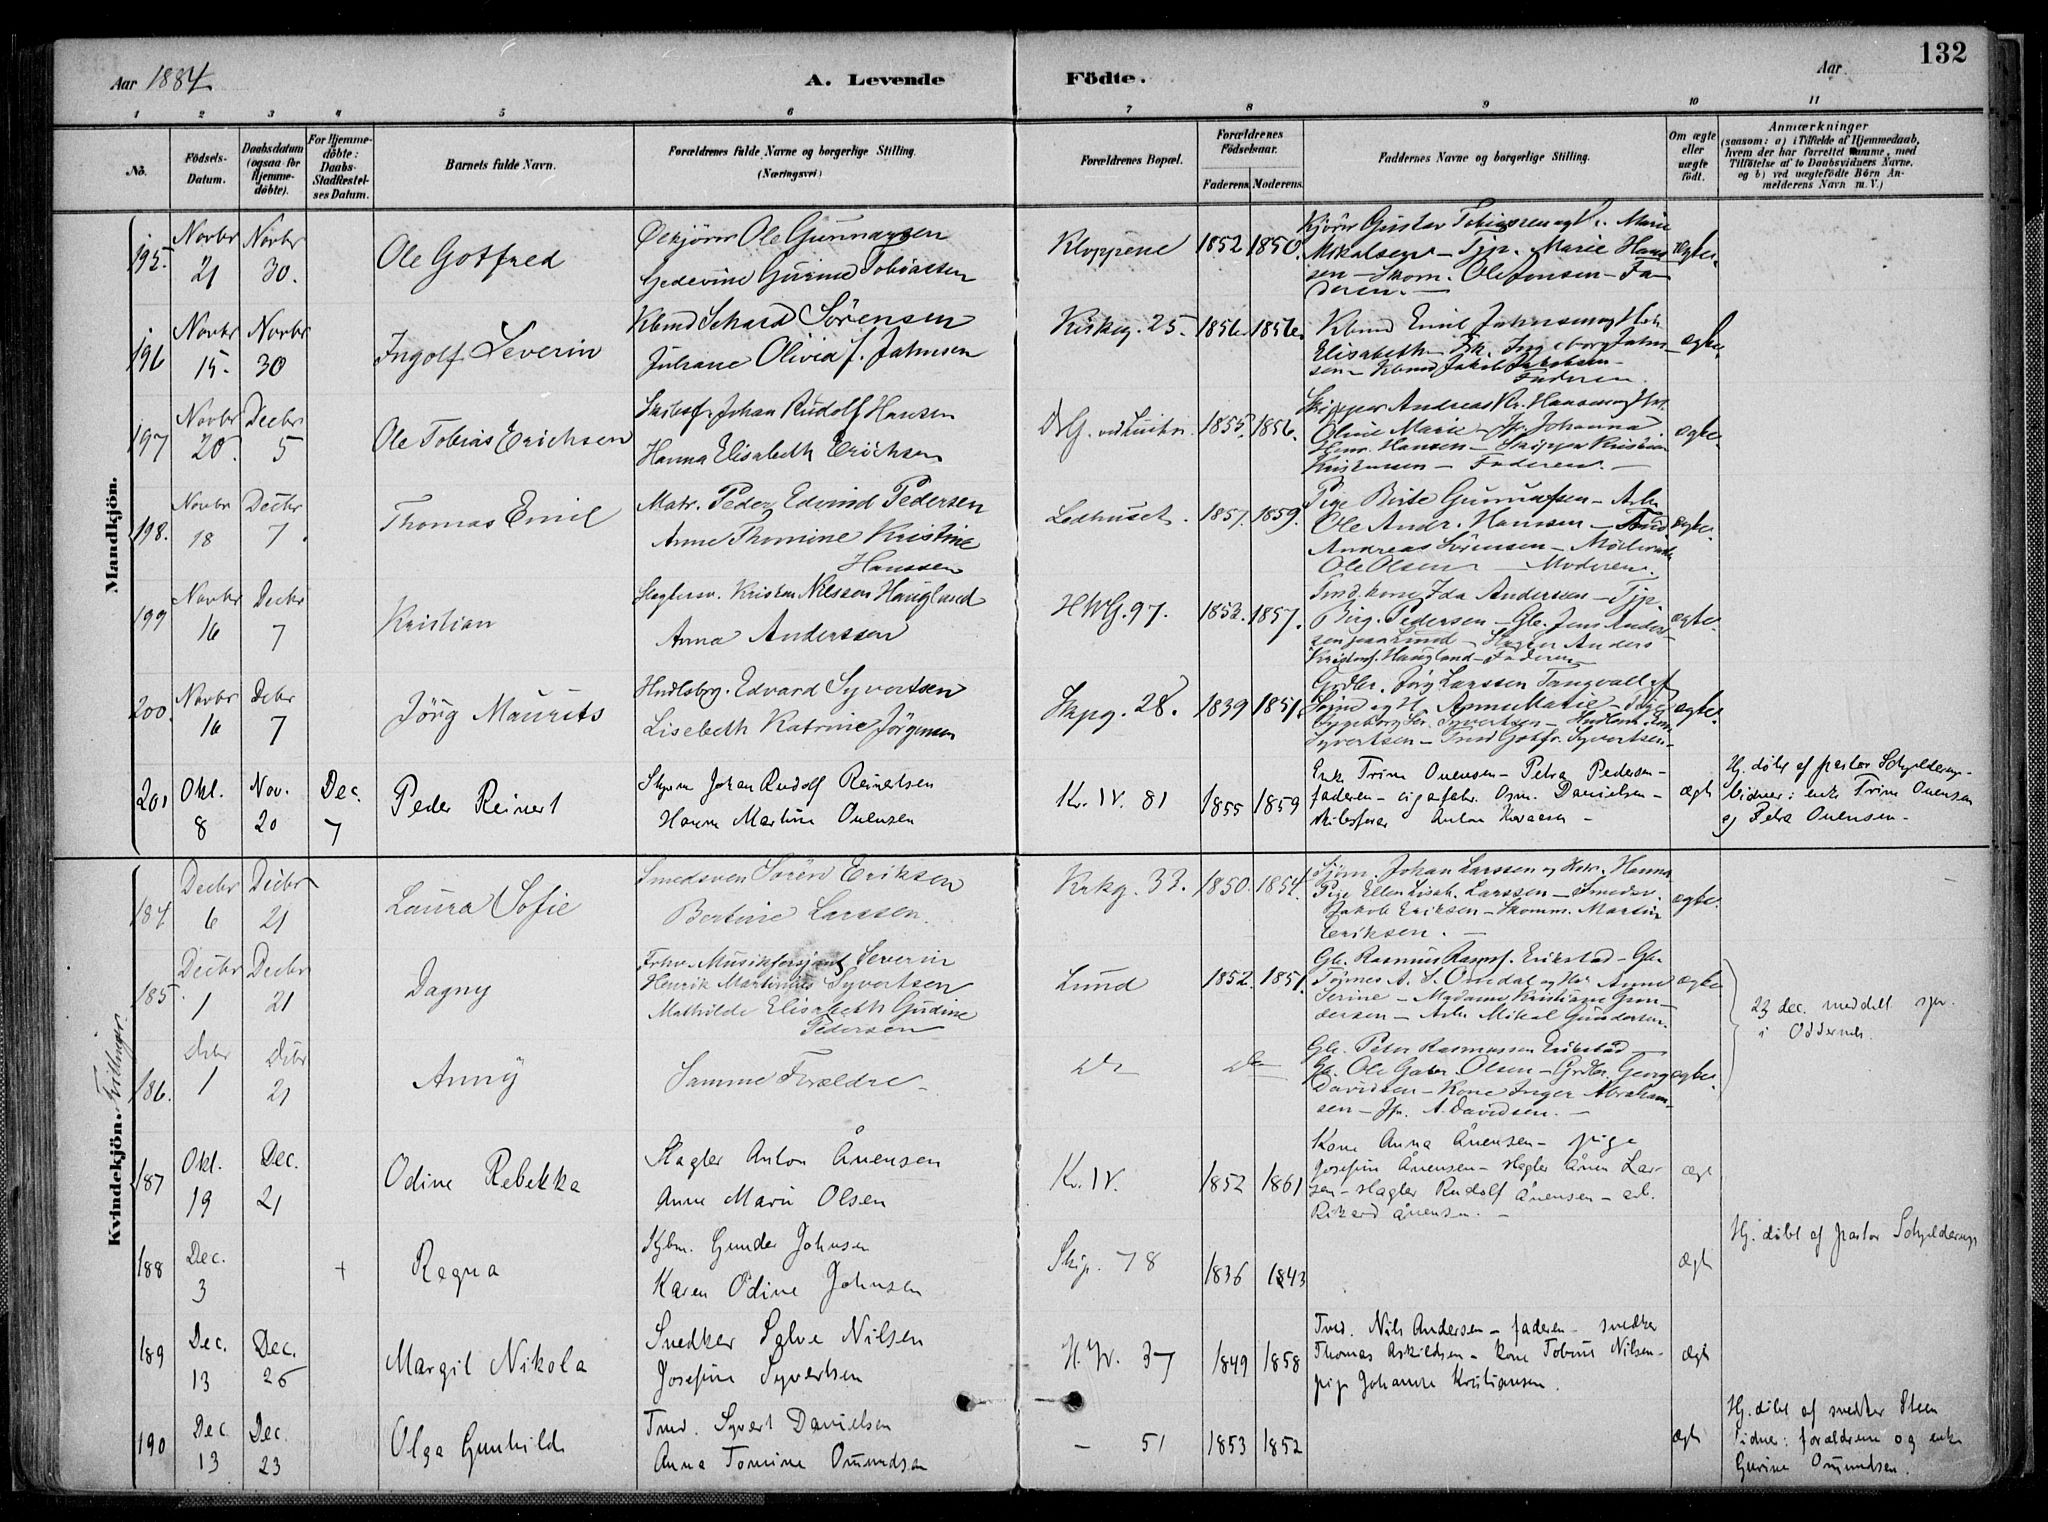 132
Aar 1884
A. Levende Födte.
Aar
1 2 3 4 5 6 7 8 9 10 11
No. Födsels-Datum. Daabsdatum (ogsaa for Hjemmedöbte). For Hjemmedöbte: Daabs-Stadfæstelses Datum. Barnets fulde Navn. Forældrenes fulde Navne og borgerlige Stilling. (Næringsvei) Forældrenes Bopæl. Forældrenes Födselsaar. Faderens. Moderens. Faddernes Navne og borgerlige Stilling. Om ægte eller uægte födt. Anmærkninger (saasom: a) i Tilfælde af Hjemmedaab, hvem der har forrettet samme, med Tilföielse af to Daabsvidners Navne, og b) ved uægtefödte Börn Anmelderens Navn m. V.)
Mandkjön.
195. Novbr 21 Novbr 30.
Ole Gotfred
Ole Gunnarsen
Gedevine Gurine Tobiassen
Kloppene 1852 1850.
Gustav Tobiassen og H. Marie
Mikalsen – Tjp. Marie Hans
sen – Skom. Ole Jonsen – Fa
deren. –
ægte.
196 Novbr 15. Novbr 30
Ingolf Severin
Sörensen
Juliane Olivia J. Jahnsen
Kirkeg. 25. 1856. 1856.
Kbmd Emil Jahnsen og Hstr
Elisabeth – Frk. Ingeborg Jahn
sen – Kbmd Jakob
Faderen.
ægte.
197 Novbr 20. Decbr 5
Ole Tobias Erichsen
Skibsf. Johan Rudolf Hansen
Hanna Elisabeth Erichsen
1853. 1856.
Skipper Andreas Kr. Hansen og Hst.
Oline Marie – Jfr. Johanna
Henr. Hansen – Skipper Kristian
Kristensen – Faderen. –
ægte.
198. Novbr 18 Decbr 7.
Thomas Emil
Matr. Peder Edvind Pedersen
Anne Thomine Kristine
Hanssen
Ledhuset. 1857. 1859.
Pige Birte Gunnufsen – Arb.
Ole Andr. Hanssen – Tind.
Andreas Sörensen –
Ole Olsen – Moderen.
ægte.
199 Novbr 16 Decbr 7
Kristian
Slagtersv. Kristen Nilssen Haugland
Anna Anderssen
HWG. 97. 1853. 1857.
Tind. kone Ida Andersen – Tjp.
Birg. Pedersen – Glr. Jens Ander
sen paa Lund – Slagter Anders
Kristens. Haugland – Faderen
ægte.
200. Novbr 16 Debr 7
Jörg Maurits
Hndlsbg. Edvard Syvertsen
Lisebeth Katrine Jörgensen
Skpg. 28. 1839 1851.
Grdbr. Jörg Larssen Tangvall af
Sögne og H. Anne Marie – Pige
Ingeborg Syvertsen –
Syvertsen – Tind Gotfr. Syvertsen –
ægte.
201 Okt. 8 Nov. 20 Dec. 7
Peder Reinert
Johan Rudolf Reinertsen
Hanna Martine Ouensen
Kr. IV. 81 1855 1859
Enke Trine Ouensen – Petra Pedersen –
faderen – cigarfabr. Osm. Danielsen –
Anton –
ægt
Hj. döbt af pastor Schjelderup.
Vidner: enke Trine Ouensen
og Petra Ouensen –
Kvindekjön.
Tvillinger.
184. Decbr 6 Decbr 21
Laura Sofie
Smedsven Sören Eriksen
Bertine Larssen.
Krkg. 33. 1850. 1854.
Sjöm. Johan Larssen og Hstr. Hanna
Pige Ellen Lisab. Larssen – Smedsv.
Jakob Eriksen – Skomm. Martin
Eriksen. –
ægte.
185. Decbr 1 Decbr 21
Dagny
Severin
Henrik Martinius Syvertsen
Mathilde Elisabeth Gudine
Pedersen
Lund 1852. 1851.
Glr. Rasmus Erikstad – Glr.
Tönnes A. S. Omdal og Hstr Anne
Serine – Madame Kristiane Gun
dersen – Arbr Mikal Gundersen.
ægte
23 dec. meddelt spr.
i Oddernes.
186. Debr 1 Debr 21
Anny
Samme Forældre –
Do Do
Glr. Peter Rasmussen Erikstad –
Glr. Ole Gabr. Olsen – Grdbr. Georg
Davidsen – Kone Inger Abraham
sen – Jfr. A. Davidsen. –
ægte.
187 Okt. 19 Dec. 21
Odine Rebekka
Slagter Anton Ånensen
Anne Marie Olsen
Kr. IV. 1852 1861
Kone Anna Ånensen – pige
Josefine Ånensen – slagter Ånen Lar-
sen – slagter Rudolf Ånensen – arb.
Rikard Ånensen. –
ægt
188 Dec. 3 +
Regna
Kjbm. Gunder Johnsen
Karen Odine Johnsen
Skip. 78 1836 1843
ægt
Hj. döbt af pastor Schjelderup
189 Dec. 13 Dec. 26
Margit Nikola
Snedker Salve Nilsen
Josefine Syvertsen
H. W. 37 1849 1858
Tind. Nils Andersen – faderen – snedker
Thomas Askildsen – kone Tobine Nilsen –
pige Johanne Kristiansen.
ægt
190 Dec. 13 Dec. 23
Olga Gunhild
Tind. Syvert Danielsen
Anna Tomine Omundsen
– 51 1853 1852
ægt
Hj. döbt af snedker Steen
Vidner: forældrene og enke
Gurine Omundsen.